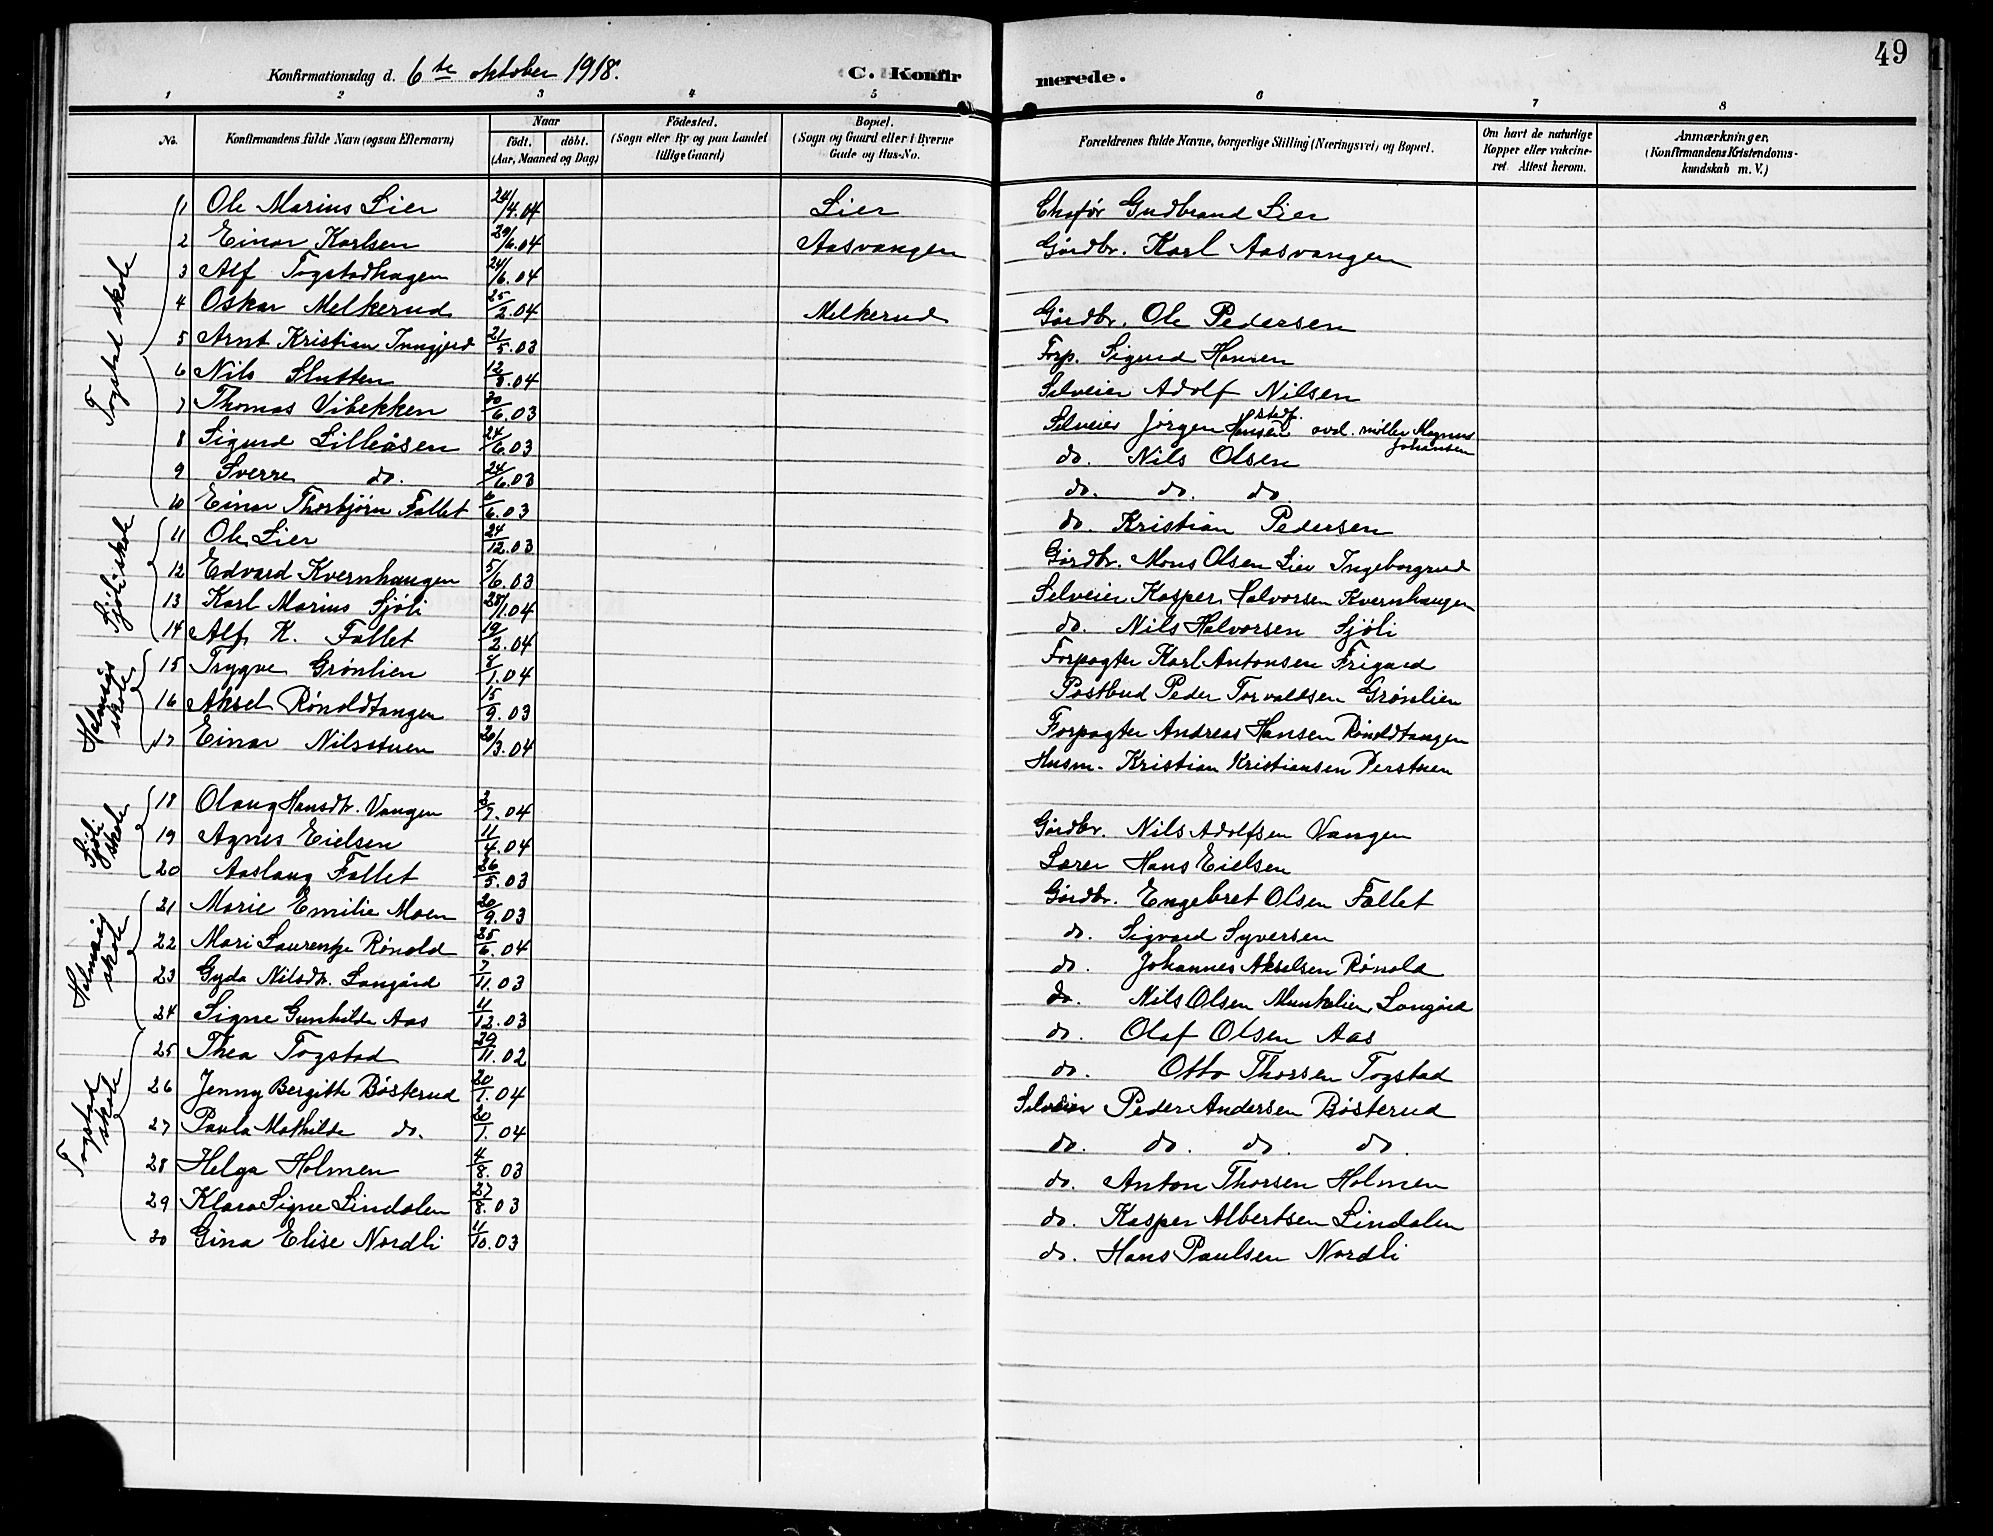 49
Konfirmationsdag d. 6te oktober 1918. C. Konfir merede.
1 2 3 4 5 6 7 8
No. Konfirmandens fulde Navn (ogsaa Efternavn) Naar født. døbt. (Aar, Maaned og Dag) Fødested. (Sogn eller By og paa Landet tillige Gaard) Bopæl. (Sogn og Gaard eller i Byerne Gade og Hus-No. Forældrenes fulde Navne, borgerlige Stilling (Næringsvei) og Bopæl. Om havt de naturlige Kopper eller vakcineret. Attest herom. Anmærkninger. (Konfirmandens Kristendomskundskab m. V.)
Togstad skole
1 Ole Marius Lier 24/4.04 Lier Chafør Gudbrand Lier
2 Einar Karlsen 29/6.04 Aasvangen Gårdbr. Karl Aasvangen
3 Alf Togstadhagen 24/6.04
4 Oskar Melkerud 25/2.04 Melkerud Gårdbr. Ole Pedersen
5 Arnt Kristian Inngjerd 21/5.03 Forp. Sigurd Hansen
6 Nils Slutten 12/8.04 Selveier Adolf Nilsen
7 Thomas Vibekken 30/6.03 Selveier Jørgen Hansen stedf. avd. møller Magnus Johansen
8 Sigurd Lilleåsen 24/6.03 do. Nils Olsen
9 Sverre do. 24/6.03 do. do. do.
10 Einar Thorbjørn Fallet 6/6.03 do. Kristian Pedersen
Sjøli skole
11 Ole Lier 24/12.03 Gårdbr. Mons Olsen Lier Ingeborgrud
12 Edvard Kvernhaugen 5/6.03 Selveier Kasper Halvorsen Kvernhaugen
13 Karl Marius Sjøli 28/1.04 do. Nils Halvorsen Sjøli
14 Alf K. Fallet 19/2.04 Forpagter Karl Antonsen Frigard
Holmsig skole
15 Trygve Grønlien 8/1.04 Postbud Peder Torvaldsen Grønlien
16 Aksel Rønoldtangen 15/9.03 Forpagter Andreas Hansen Rønoldtangen
17 Einar Nilsstuen 20/3.04 Husm. Kristian Kristiansen Perstuen
Sjøli skole
18 Olaug Hansdtr. Vangen 3/7.04 Gårdbr. Nils Adolfsen Vangen
19 Agnes Eielsen 11/4.04 Lærer Hans Eielsen
20 Aaslaug Fallet 26/5.03 Gårdbr. Engebret Olsen Fallet
Holmsig skole
21 Marie Emilie Moen 20/9.03 do. Sigvard Syversen
22 Mari Laurentze Rønold 25/6.04 do. Johannes Akselsen Rønold
23 Gyda Nilsdtr. Langård 7/11.03 do. Nils Olsen Munkelien, Langård
24 Signe Gunhilde Aas 11/12.03 do. Olaf Olsen Aas
Togstad skole
25 Thea Togstad 29/11.02 do. Otto Thorsen Togstad
26 Jenny Bergitte Bøsterud 20/1.04 Selveier Peder Andersen Bøsterud
27 Paula Mathilde do. 20/1.04 do. do. do. do.
28 Helga Holmen 4/8.03 do. Anton Thorsen Holmen
29 Klara Signe Lindalen 27/8.03 do. Kasper Albertsen Lindalen
30 Gina Elise Nordli 11/10.03 do. Hans Paulsen Nordli